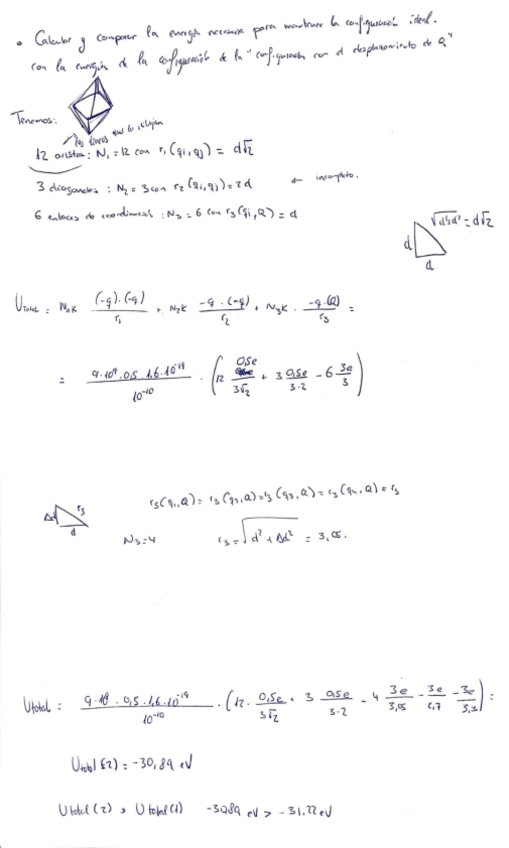 • Calcular y comparar la energía necesaria para mantener la configuración ideal.
con la energía de la configuración de la "configuración con el desplazamiento de Q"
Tenemos:
las líneas que se dibujan
12 aristas: N₁ = 12 con r₁(qi,qj) = d√2
3 diagonales: N₂ = 3 con r₂(qi,qj) = 2d ← incompleto.
6 enlaces de coordinación: N₃ = 6 con r₃(qi,Q) = d
√d²+d² = d√2
d
d
Utotal = N₁K (-q)·(-q)/r₁ + N₂K -q·(-q)/r₂ + N₃K · -q·(Q)/r₃ =
= 9·10⁹·0,5·1,6·10⁻¹⁹/10⁻¹⁰ · (12 0,5e/3√2 + 3 0,5e/3·2 - 6 3e/3)
Δd r₃
d
r₃(q₁,Q) = r₃(q₂,Q) = r₃(q₃,Q) = r₃(q₄,Q) = r₃
N₃ = 4 r₃ = √d² + Δd² = 3,05.
Utotal = 9·10⁹·0,5·1,6·10⁻¹⁹/10⁻¹⁰ · (12· 0,5e/3√2 + 3 0,5e/3·2 - 4 3e/3,05 - 3e/2,7 - 3e/3,3) =
Utotal(2) = -30,89 eV
Utotal(2) > Utotal(1) -30,89 eV > -31,22 eV